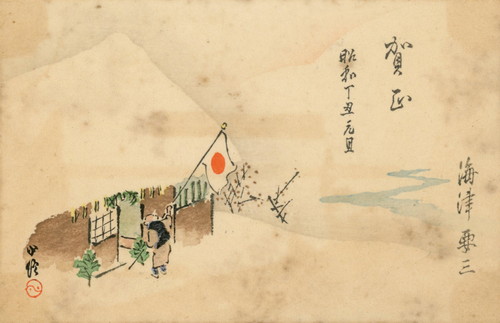 賀正
昭和丁丑元旦
海津要三